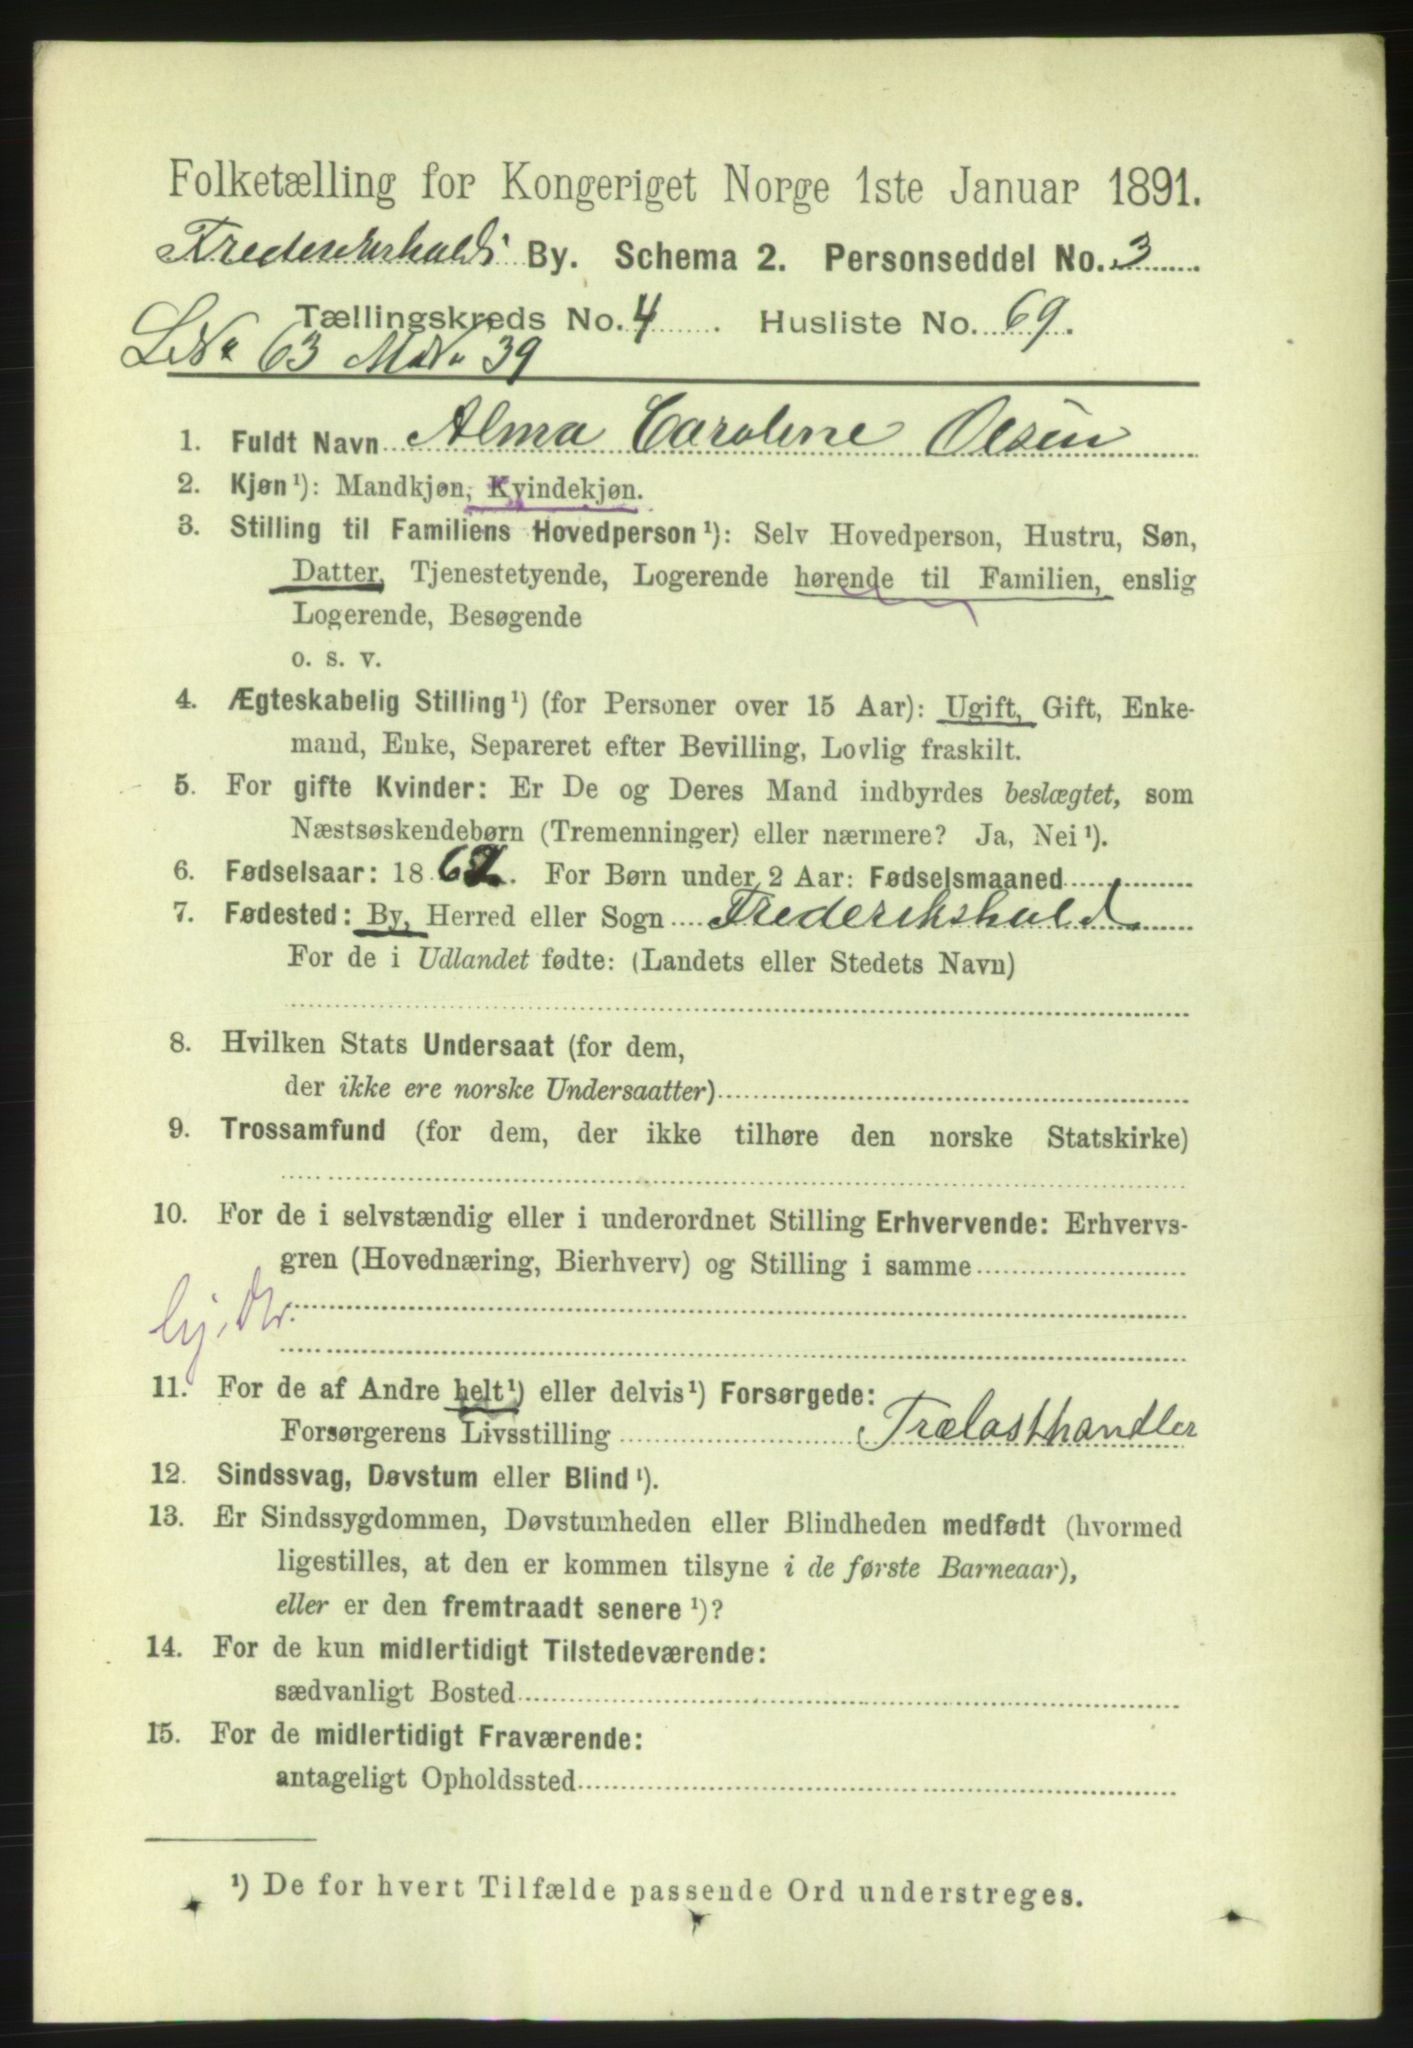 Folketælling for Kongeriget Norge 1ste Januar 1891.
Frederikshalds By. Schema 2. Personseddel No. 3
Tællingskreds No. 4. Husliste No. 69.
LNo 63 MNo 39
1. Fuldt Navn Alma Caroline Olsen
2. Kjøn¹): Mandkjøn, Kvindekjøn.
3. Stilling til Familiens Hovedperson¹): Selv Hovedperson, Hustru, Søn,
Datter, Tjenestetyende, Logerende hørende til Familien, enslig
Logerende, Besøgende
o. s. v.
4. Ægteskabelig Stilling¹) (for Personer over 15 Aar): Ugift, Gift, Enke-
mand, Enke, Separeret efter Bevilling, Lovlig fraskilt.
5. For gifte Kvinder: Er De og Deres Mand indbyrdes beslægtet, som
Næstsøskendebørn (Tremenninger) eller nærmere? Ja, Nei¹).
6. Fødselsaar: 1862. For Børn under 2 Aar: Fødselsmaaned
7. Fødested: By, Herred eller Sogn Frederikshald
For de i Udlandet fødte: (Landets eller Stedets Navn)
8. Hvilken Stats Undersaat (for dem,
der ikke ere norske Undersaatter)
9. Trossamfund (for dem, der ikke tilhøre den norske Statskirke)
10. For de i selvstændig eller i underordnet Stilling Erhvervende: Erhvervs-
gren (Hovednæring, Bierhverv) og Stilling i samme
11. For de af Andre helt¹) eller delvis¹) Forsørgede:
Forsørgerens Livsstilling Trælasthandler
12. Sindssvag, Døvstum eller Blind¹).
13. Er Sindssygdommen, Døvstumheden eller Blindheden medfødt (hvormed
ligestilles, at den er kommen tilsyne i de første Barneaar),
eller er den fremtraadt senere¹)?
14. For de kun midlertidigt Tilstedeværende:
sædvanligt Bosted
15. For de midlertidigt Fraværende:
antageligt Opholdssted
¹) De for hvert Tilfælde passende Ord understreges.